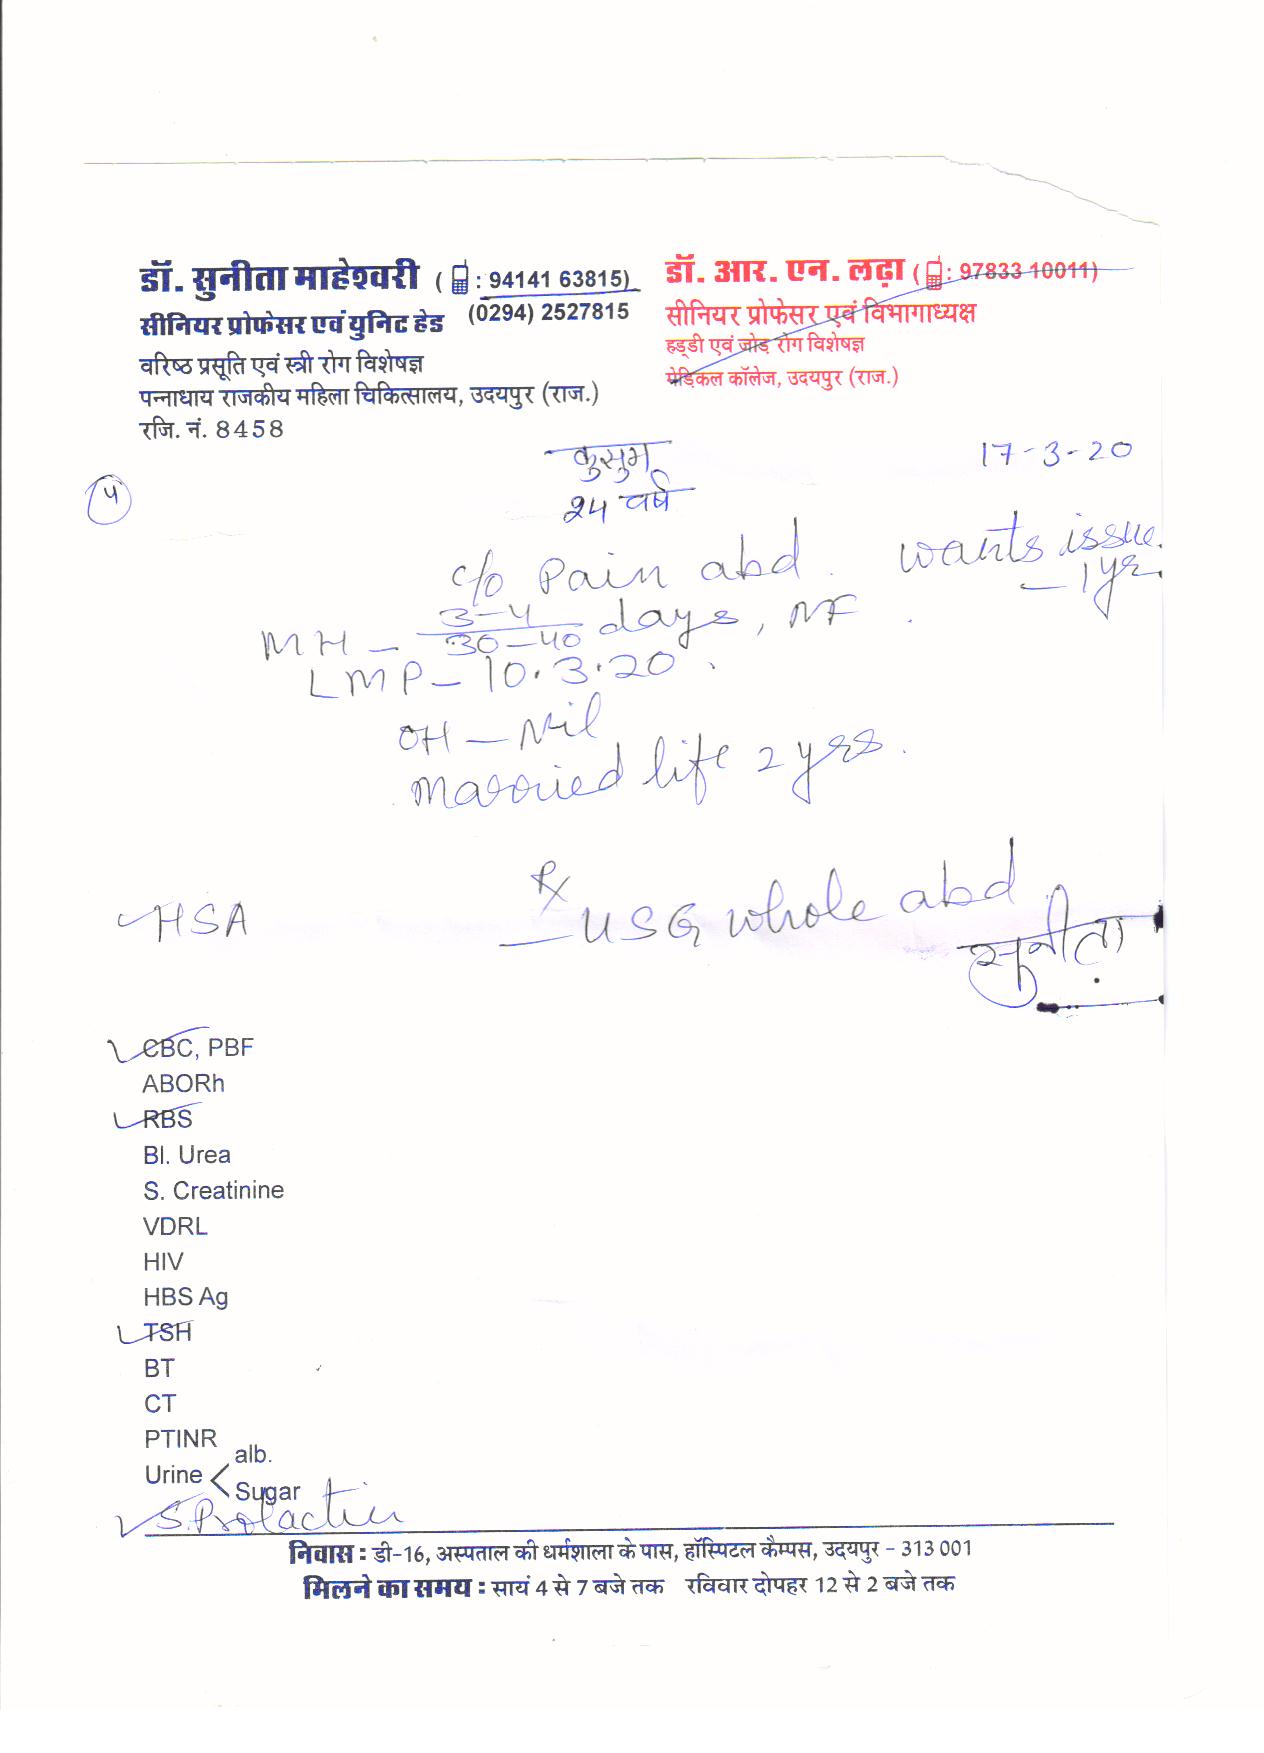 डॉ. सुनीता माहेश्वरी ( : 94141 63815)
सीनियर प्रोफेसर एवं युनिट हेड (0294) 2527815
वरिष्ठ प्रसूति एवं स्त्री रोग विशेषज्ञ
पन्नाधाय राजकीय महिला चिकित्सालय, उदयपुर (राज.)
रजि. नं. 8458
डॉ. आर. एन. लढ़ा ( : 97833 10011)
सीनियर प्रोफेसर एवं विभागाध्यक्ष
हड्डी एवं जोड़ रोग विशेषज्ञ
मेडिकल कॉलेज, उदयपुर (राज.)
कुसुम 17-3-20
4
24 वर्ष
c/o Pain abd. wants issue.
– 1 yr.
MH – 3-4/30-40 days, NF
LMP – 10.3.20.
OH – Nil
Married life 2 yrs.
Rx
HSA – USG whole abd
सुनीता
CBC, PBF
ABORh
RBS
Bl. Urea
S. Creatinine
VDRL
HIV
HBS Ag
TSH
BT
CT
PTINR
Urine < alb.
Sugar
S. Prolactin
निवास : डी-16, अस्पताल की धर्मशाला के पास, हॉस्पिटल कैम्पस, उदयपुर - 313 001
मिलने का समय : सायं 4 से 7 बजे तक रविवार दोपहर 12 से 2 बजे तक